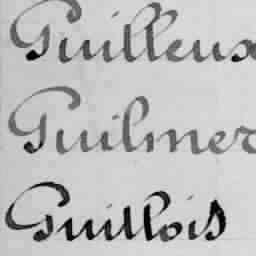 Guilleux
Guilmer
Guillois